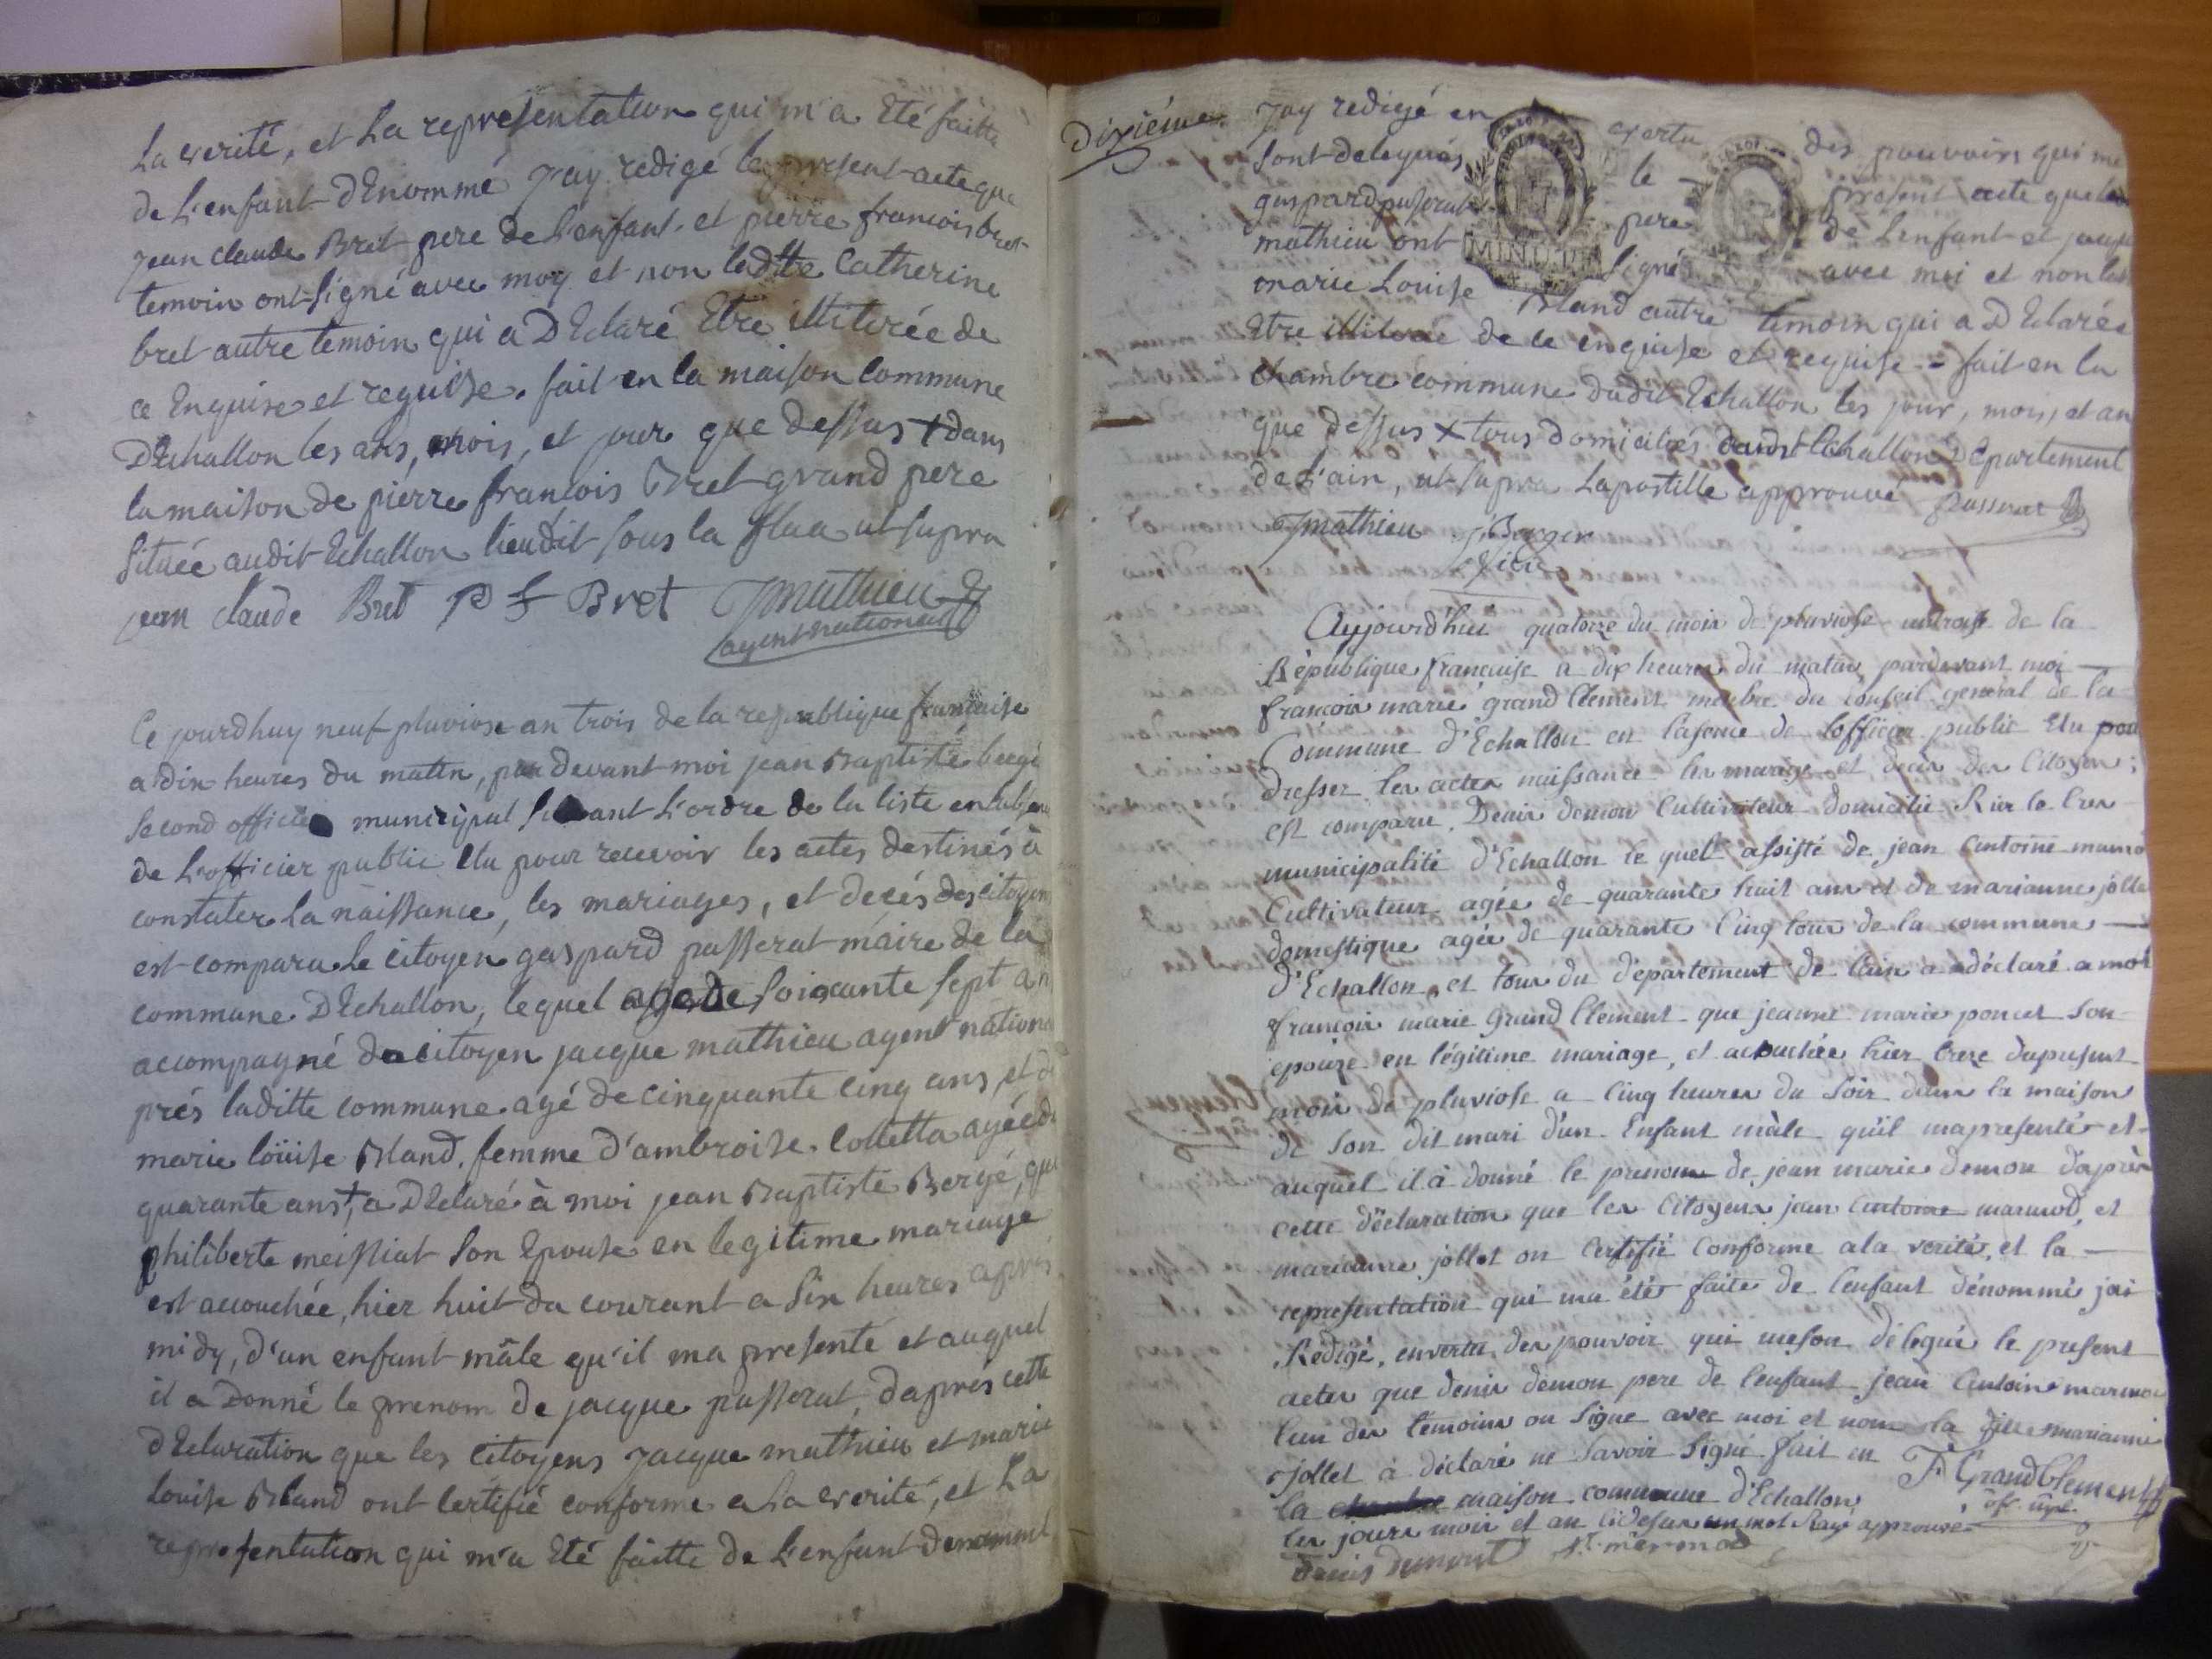 La verité, et La representation qui m'a Eté faitte
de L'enfant dEnommé Jay redigé le present acte que
jean claude Bret pere de l'enfant et pierre francois bret
temoin ont signé avec moy et non laditte Catherine
bret autre temoin qui a DEclaré Etre illiterée de
ce Enquise et requise. fait en la maison commune
DEchallon les ans, mois, et jour que dessus + dans
la maison de pierre francois Bret grand pere
située audit Echallon lieudit sous la ut supra
jean claude Bret P f Bret J mathieu
agent national
Ce jourdhuy neuf pluviose an trois de la republique francaise
a dix heures du matin, par devant moi jean Baptiste bergé
second officier municipal suivant L'ordre de la liste en labsence
de L'officier public Elu pour recevoir les actes destinés à
constater la naissance, les mariages, et decés des citoyens
est comparu Le citoyen gaspard passerat maire de la
commune DEchallon, lequel agé de soixante sept an
accompagné du citoyen jacque mathieu agent national
prés laditte commune. agé de cinquante cinq ans, et de
marie loüise Bland, femme d'ambroise. colletta agée de
quarante ans +, a DEclaré à moi jean Baptiste Bergé, que
philiberte meissiat son Epouse en legitime mariage
est accouchée, hier huit du courant a six heures aprés
midy, d'un enfant mâle qu'il ma presenté et auquel
il a Donné le prenom de jacque passerat, dapres cette
dEclaration que les citoyens jacque mathieu et marie
Louise Bland ont certifié conforme a La verité, et La
representation qui m'a Eté faitte de L'enfant denommé
Dixiéme
Jay redigé en vertu des pouvoirs qui me
sont delegués le present acte que led
gaspard passerat pere de L'enfant et jacque
mathieu ont signés avec moi et non lad
marie Louise Bland autre temoin qui a DEclarée
Etre illiterée de ce enquise et requise = fait en la
chambre commune dudit Echallon les jour, mois, et an
que dessus + tous domiciliés audit Echallon Département
de L'ain, ut supra Lapostille approuvé passerat
J mathieu J Berger
Aujourd'hui quatorze du mois de pluviose an trois de la
République francaise a dix heures du matin pardevant moi
francois marie grand Clement membre du conseil general de la
Commune d'Echallon en lasence de lofficier public Elu pour
dresser les actes naissance les mariage et deces des Citoyens;
est comparu. Denis demon Cultivateur domicilié Rier la
municipalité d'Echallon le quel assisté de jean Antoine marmo
Cultivateur agée de quarante huit ans et de marianne jollet
domestique agée de quarante Cinq tous de la commune
d'Echallon et tous du département de l'ain a déclaré a moi
francois marie Grand Clement que jeanne marie poncet son
epouze en légitime mariage, et acouchée hier treze dupresent
mois de pluviose a Cinq heures du soir dans la maison
de son dit mari d'un Enfant mâle qu'il mapresenté et
auquel il à donné le prenom de jean marie demon d'après
cette déclaration que les Citoyens jean Antoine marmod et
marianne jollet on Certifié conforme ala verité, et la
representation qui ma été faite de l'enfant dénommé jai
Rédigé, envertu des pouvoir qui meson délegué le present
actes que denis demon pere de l'enfant jean Antoine marmo
l'un des temoins on signe avec moi et nom la fille marianne
jollet à déclaré ne savoir Signé fait en
la maison commune d'Echallon
les jours mois et an cidesus un mot Rayé approuvé
F GrandClement
off. mpl.
denis demont